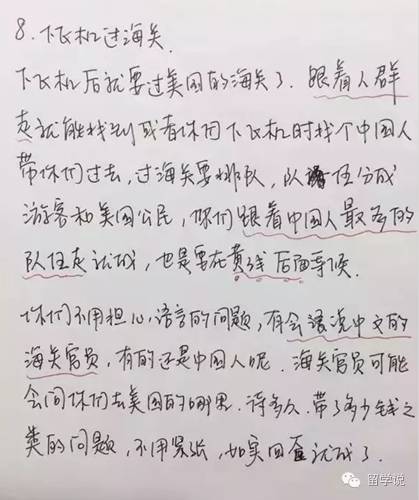 8. 下飞机过海关.
下飞机后就要过美国的海关了. 跟着人群
走就能找到或者你们下飞机时找个中国人
带你们过去, 过海关要排队, 队伍分成
游客和美国公民, 你们跟着中国人最多的
队伍走就成, 也是要在黄线后面等候.
你们不用担心语言的问题, 有会说中文的
海关官员, 有的还是中国人呢. 海关官员可能
会问你们去美国的哪里. 待多久. 带了多少钱之
类的问题, 不用紧张, 如实回答就成了.
留学说